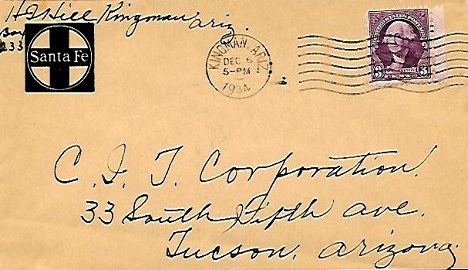 H G Hill Kingman Ariz
Box
233
Santa Fe
KINGMAN, ARIZ.
DEC 6
5-PM
1934
3 3
C. I. T. Corporation.
33 South Fifth ave.
Tucson, Arizona